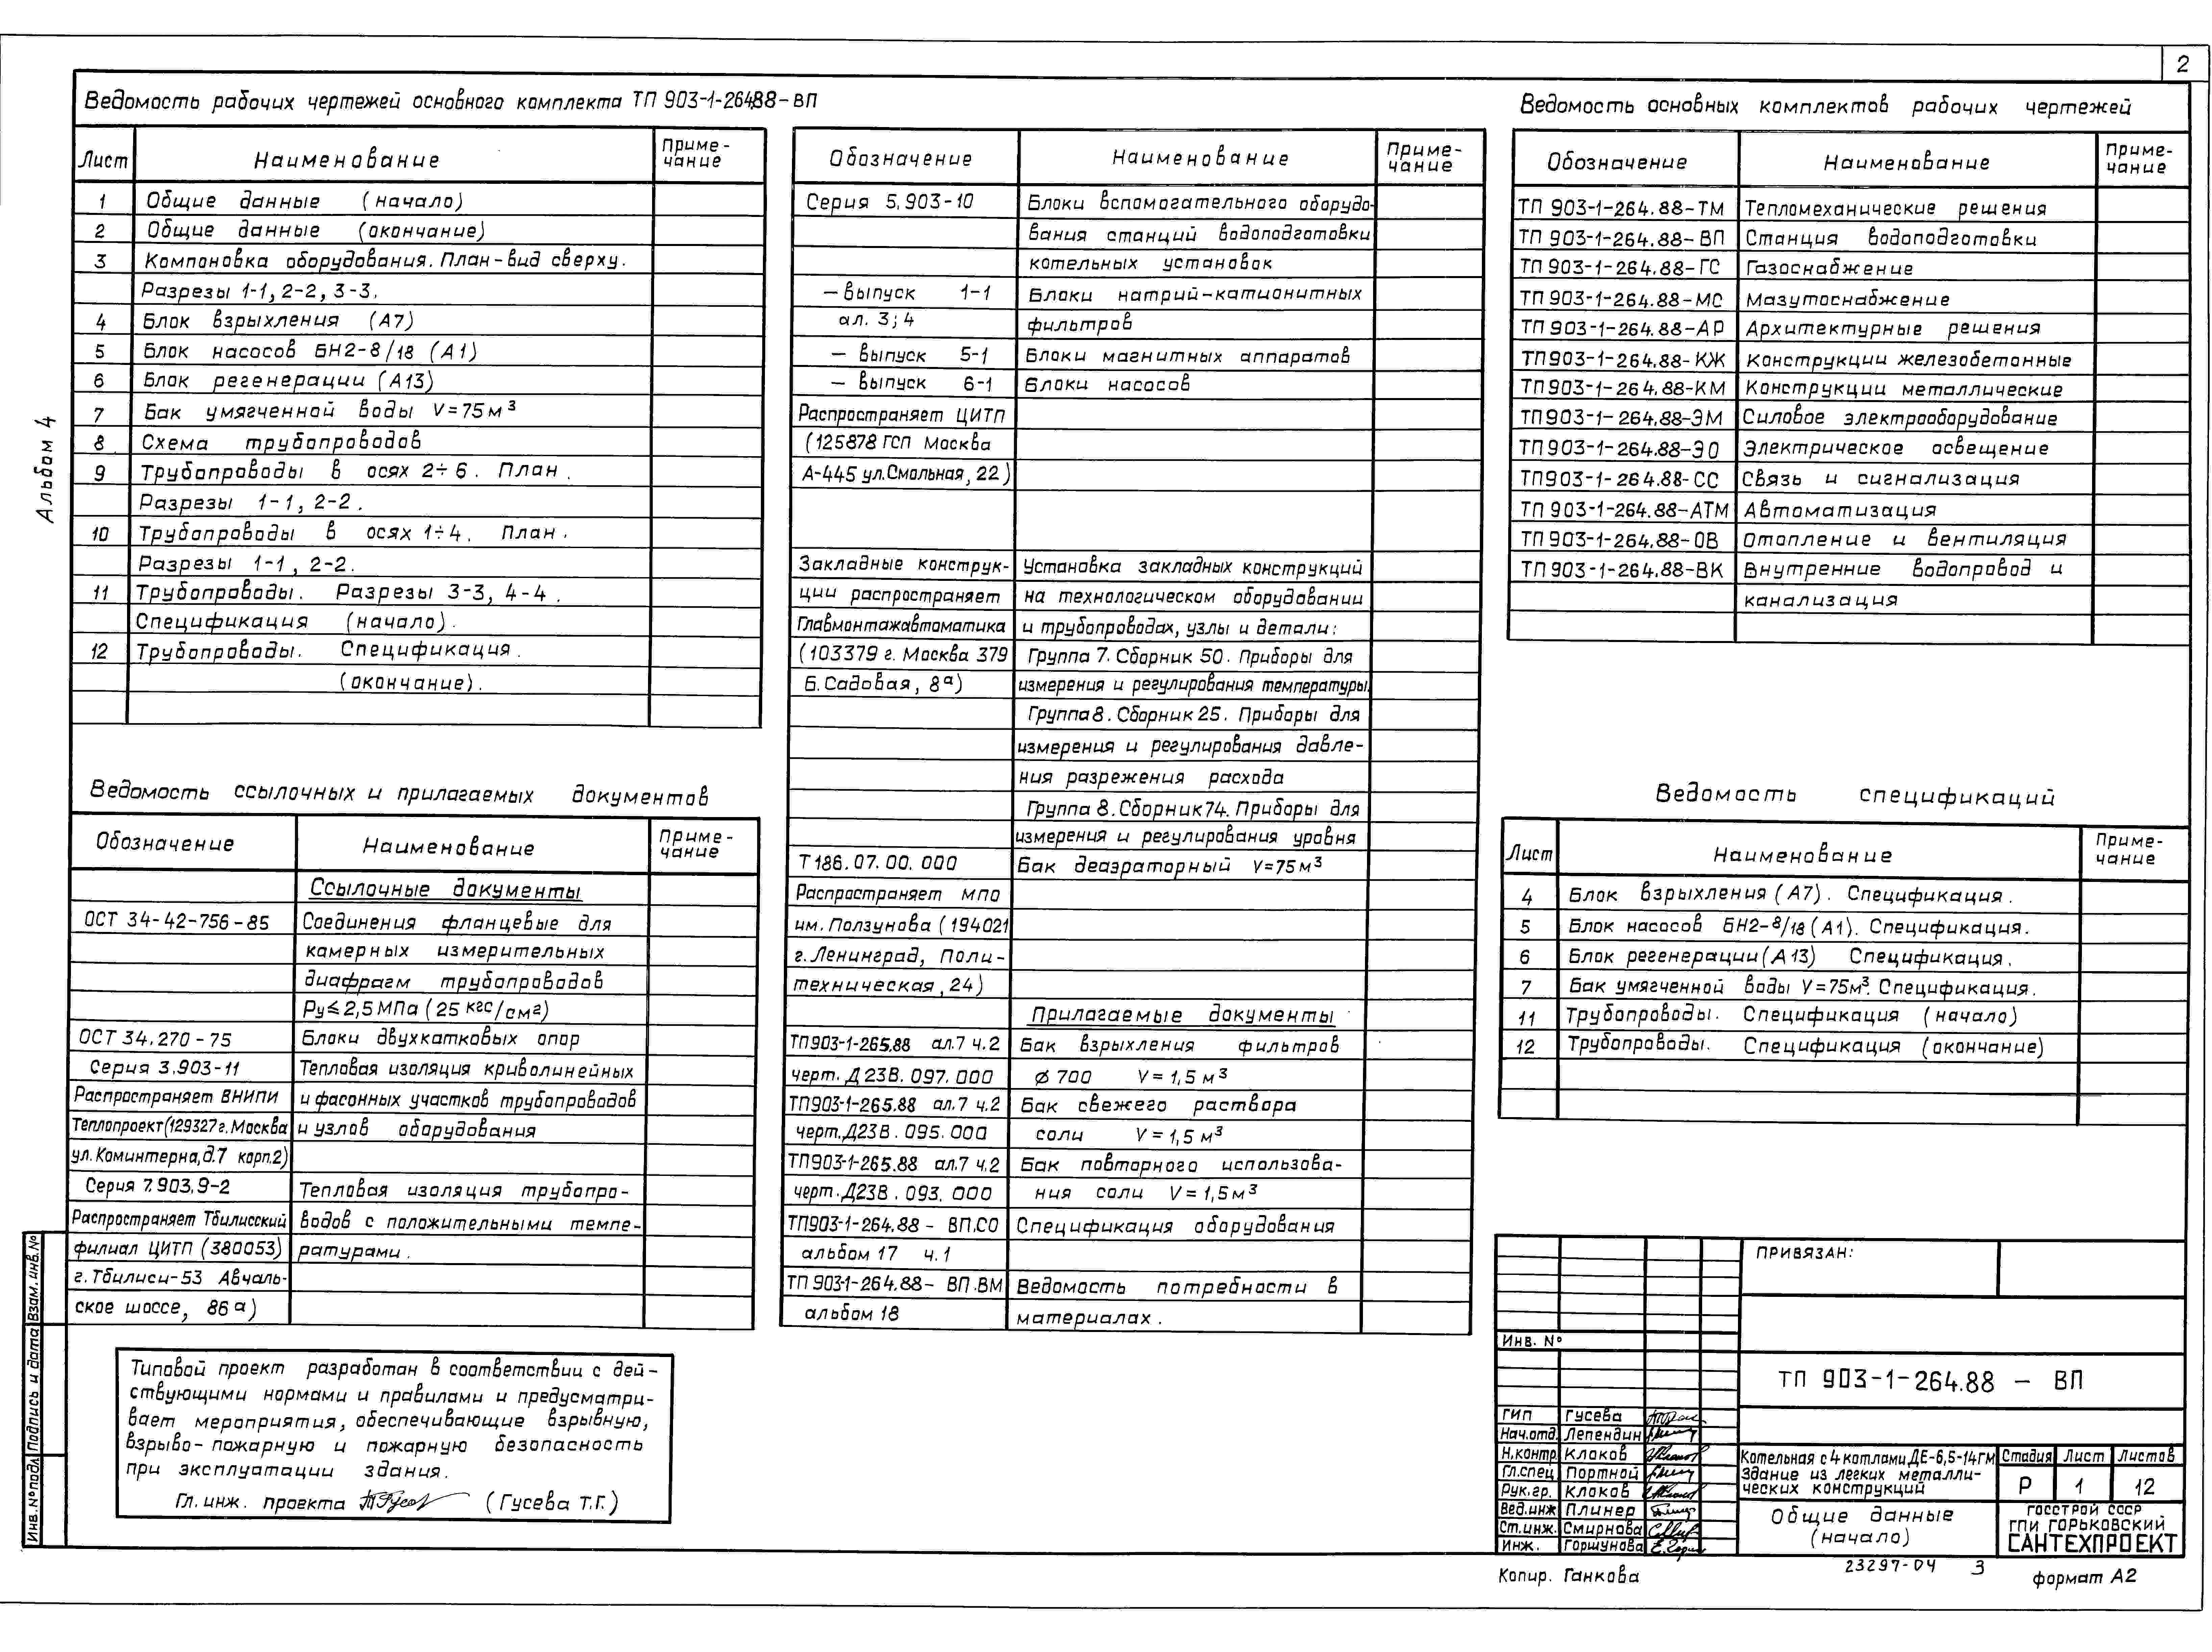 2
Альбом 4
Ведомость рабочих чертежей основного комплекта ТП 903-1-264.88-ВП
Лист Наименование Приме-
чание
1 Общие данные (начало)
2 Общие данные (окончание)
3 Компоновка оборудования. План-вид сверху.
Разрезы 1-1, 2-2, 3-3.
4 Блок взрыхления (А7)
5 Блок насосов БН2-8/18 (А1)
6 Блок регенерации (А13)
7 Бак умягченной воды V=75м³
8 Схема трубопроводов
9 Трубопроводы в осях 2÷6. План.
Разрезы 1-1, 2-2.
10 Трубопроводы в осях 1÷4. План.
Разрезы 1-1, 2-2.
11 Трубопроводы. Разрезы 3-3, 4-4.
Спецификация (начало).
12 Трубопроводы. Спецификация.
(окончание).
Ведомость ссылочных и прилагаемых документов
Обозначение Наименование Приме-
чание
Ссылочные документы
ОСТ 34-42-756-85 Соединения фланцевые для
камерных измерительных
диафрагм трубопроводов
Ру≤2,5МПа (25 кгс/см²)
ОСТ 34.270-75 Блоки двухкатковых опор
Серия 3.903-11 Тепловая изоляция криволинейных
Распространяет ВНИПИ и фасонных участков трубопроводов
Теплопроект(129327г.Москва и узлов оборудования
ул.Коминтерна,д.7 корп.2)
Серия 7.903.9-2 Тепловая изоляция трубопро-
Распространяет Тбилисский водов с положительными темпе-
филиал ЦИТП (380053) ратурами.
г.Тбилиси-53 Авчаль-
ское шоссе, 86а)
Типовой проект разработан в соответствии с дей-
ствующими нормами и правилами и предусматри-
вает мероприятия, обеспечивающие взрывную,
взрыво-пожарную и пожарную безопасность
при эксплуатации здания.
Гл. инж. проекта (Гусева Т.Г.)
Обозначение Наименование Приме-
чание
Серия 5.903-10 Блоки вспомогательного оборудо-
вания станций водоподготовки
котельных установок
– выпуск 1-1 Блоки натрий-катионитных
ал. 3; 4 фильтров
– выпуск 5-1 Блоки магнитных аппаратов
– выпуск 6-1 Блоки насосов
Распространяет ЦИТП
(125878 ГСП Москва
А-445 ул.Смольная, 22)
Закладные конструк- Установка закладных конструкций
ции распространяет на технологическом оборудовании
Главмонтажавтоматика и трубопроводах, узлы и детали:
(103379 г. Москва 379 Группа 7. Сборник 50. Приборы для
Б.Садовая, 8а) измерения и регулирования температуры.
Группа 8. Сборник 25. Приборы для
измерения и регулирования давле-
ния разрежения расхода
Группа 8. Сборник 74. Приборы для
измерения и регулирования уровня
Т 186.07.00.000 Бак деаэраторный V=75м³
Распространяет МПО
им. Ползунова (194021
г.Ленинград, Поли-
техническая, 24)
Прилагаемые документы
ТП903-1-265.88 ал.7 ч.2 Бак взрыхления фильтров
черт. Д23В.097.000 ø 700 V=1,5 м³
ТП903-1-265.88 ал.7 ч.2 Бак свежего раствора
черт.Д23В.095.000 соли V=1,5 м³
ТП903-1-265.88 ал.7 ч.2 Бак повторного использова-
черт.Д23В.093.000 ния соли V=1,5м³
ТП903-1-264.88 - ВП.СО Спецификация оборудования
альбом 17 ч.1
ТП 903-1-264.88- ВП.ВМ Ведомость потребности в
альбом 18 материалах.
Ведомость основных комплектов рабочих чертежей
Обозначение Наименование Приме-
чание
ТП 903-1-264.88-ТМ Тепломеханические решения
ТП 903-1-264.88-ВП Станция водоподготовки
ТП 903-1-264.88-ГС Газоснабжение
ТП 903-1-264.88-МС Мазутоснабжение
ТП 903-1-264.88-АР Архитектурные решения
ТП 903-1-264.88-КЖ Конструкции железобетонные
ТП 903-1-264.88-КМ Конструкции металлические
ТП 903-1-264.88-ЭМ Силовое электрооборудование
ТП 903-1-264.88-ЭО Электрическое освещение
ТП 903-1-264.88-СС Связь и сигнализация
ТП 903-1-264.88-АТМ Автоматизация
ТП 903-1-264.88-ОВ Отопление и вентиляция
ТП 903-1-264.88-ВК Внутренние водопровод и
канализация
Ведомость спецификаций
Лист Наименование Приме-
чание
4 Блок взрыхления (А7). Спецификация.
5 Блок насосов БН2-8/18 (А1). Спецификация.
6 Блок регенерации (А13) Спецификация.
7 Бак умягченной воды V=75м³. Спецификация.
11 Трубопроводы. Спецификация (начало)
12 Трубопроводы. Спецификация (окончание)
ПРИВЯЗАН:
Инв. №
ТП 903-1-264.88 - ВП
ГИП Гусева
Нач.отд. Лепендин
Н.контр. Клоков
Гл.спец. Портной
Рук.гр. Клоков
Вед.инж Плинер
Ст.инж. Смирнова
Инж. Горшунова
Котельная с 4 котлами ДЕ-6,5-14ГМ
Здание из легких металли-
ческих конструкций
Стадия Лист Листов
Р 1 12
Общие данные
(начало)
ГОССТРОЙ СССР
ГПИ ГОРЬКОВСКИЙ
САНТЕХПРОЕКТ
Копир. Ганкова
23297-04 3
формат А2
Инв.№подл Подпись и дата Взам.инв.№